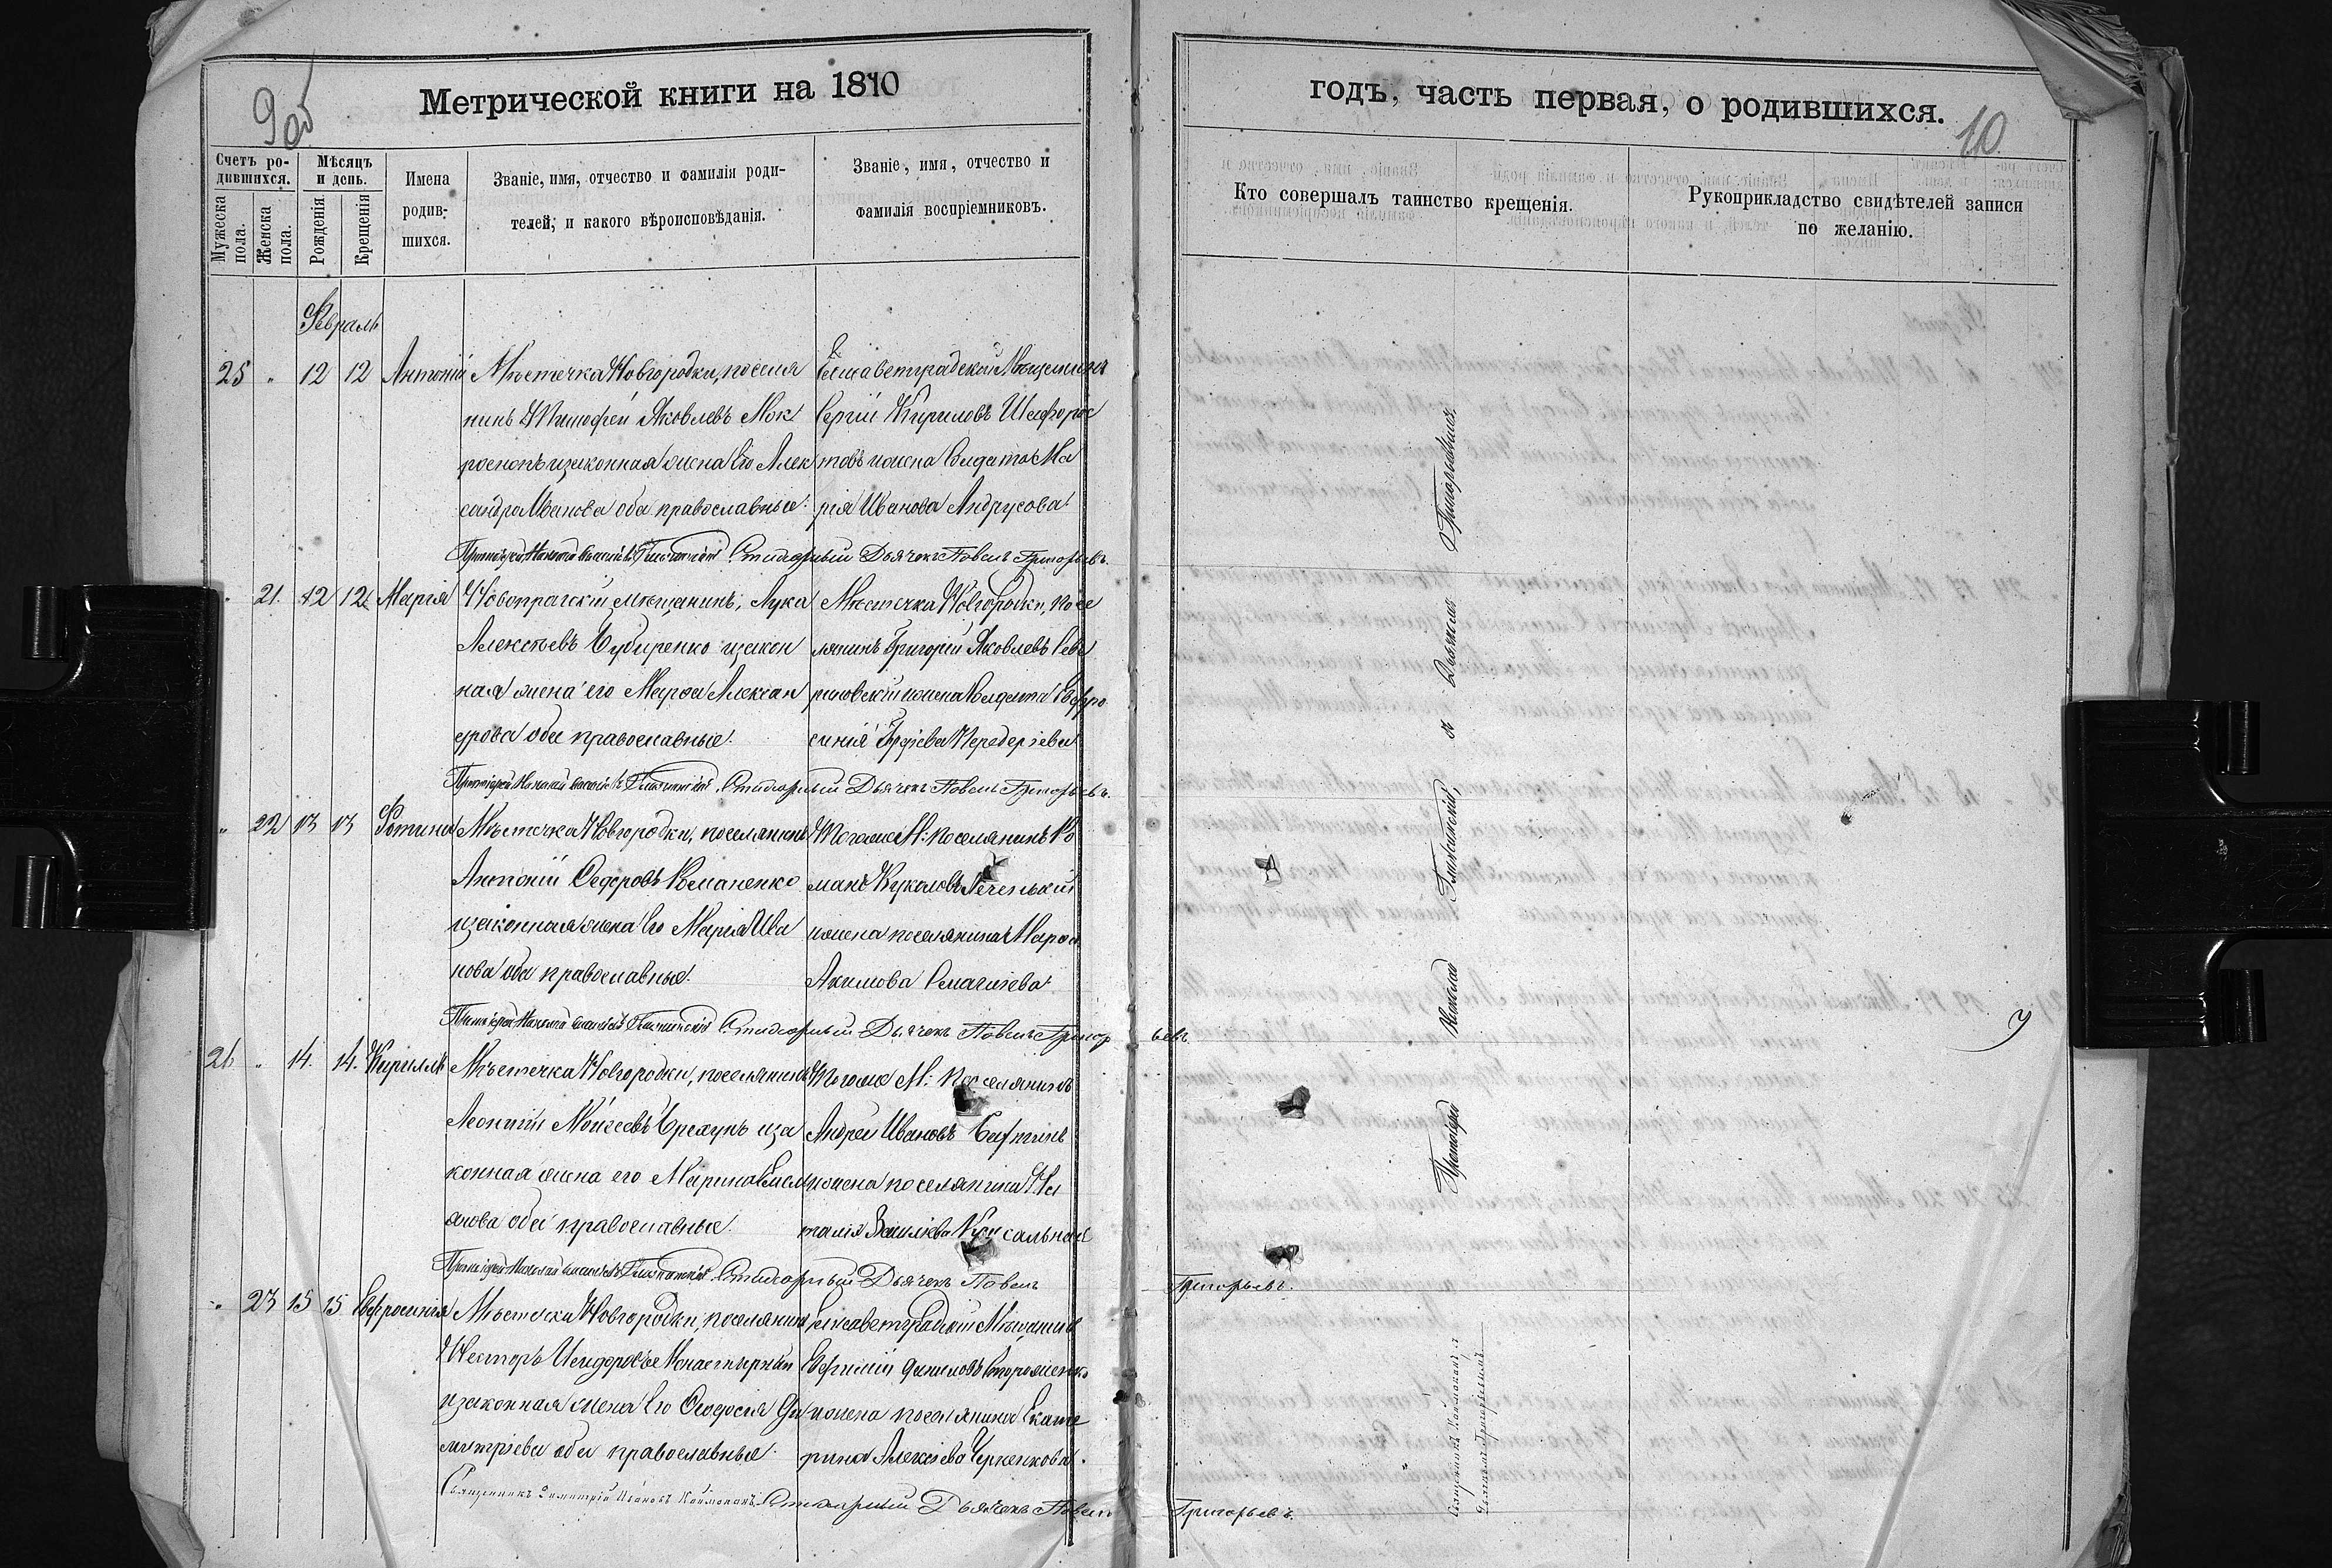 9 об
Метрической книги на 1870
годъ, часть первая, о родившихся.
10
Счетъ ро-
дившихся.
Мужеска пола.
Женска пола.
Мѣсяцъ
и день.
Рожденія.
Крещенія
Имена
родив-
шихся.
Званіе, имя, отчество и фамилія роди-
телей; и какого вѣроисповѣданія.
Званіе, имя, отчество и
фамилія воспріемниковъ.
Кто совершалъ таинство крещенія.
Рукоприкладство свидѣтелей записи
по желанію.
Февраль
25 „ 12 12 Антоній
Мѣстечка Новгородки, поселя
нинъ Тимофей Яковлевъ Мок
изаконная жена Его Алек
сандра Иванова оба православные.
Елисаветградскій Мѣщанинъ
Сергій Кириловъ
товъ ижена Солдата Ма
рія Иванова Андрусова.
Протоіерей Николай Стихарный Дьячекъ Павелъ Григорьевъ.
„ 21. 12 12 Марія
Новопражскій мѣщанинъ, Лука
Алексѣевъ изакон
ная жена его Марфа Алексан
дрова оба православные.
Мѣстечка Новгородки, посе
лянинъ Григорій Яковлевъ
ижена Солдата Евфро
синія
Протоіерей Николай Стихарный Дьячекъ Павелъ Григорьевъ.
„ 22 13 13 Фотина
Мѣстечка Новгородки, поселянинъ
Антоній Федоровъ Романенко
изаконная жена Его Марія Ива
нова оба православные.
Тогоже М: поселянинъ Ро
манъ
ижена поселянина Марфа
Акимова
Протоіерей Николай Стихарный Дьячекъ Павелъ Григорьевъ.
26 „ 14. 14. Кириллъ
Мѣстечка Новгородки, поселянинъ
Леонтій Моисеевъ Брехунъ иза
конная жена его Марина
оба православные.
Тогоже М: поселянинъ
Андрей Ивановъ
ижена поселянина На
талія
Протоіерей Николай Стихарный Дьячекъ Павелъ
Григорьевъ.
„ 23 15 15 Евфросинія
Мѣстечка Новгородки, поселянинъ
Несторъ Исидоровъ Монастырный
изаконная жена Его Феодосія Ди
митріева оба православные.
Елисаветградскій Мѣщанинъ
Евфимій Даниловъ Стороженко
ижена поселянина Екате
рина Алексіева
Священникъ Димитрій Ивановъ Каймаканъ. Стихарный Дьячекъ Павелъ
Григорьевъ.
Протоіерей Николай съ Дьячкомъ Григорьевымъ.
Священникъ Каймаканъ, съ
Дьячкомъ Григорьевымъ.